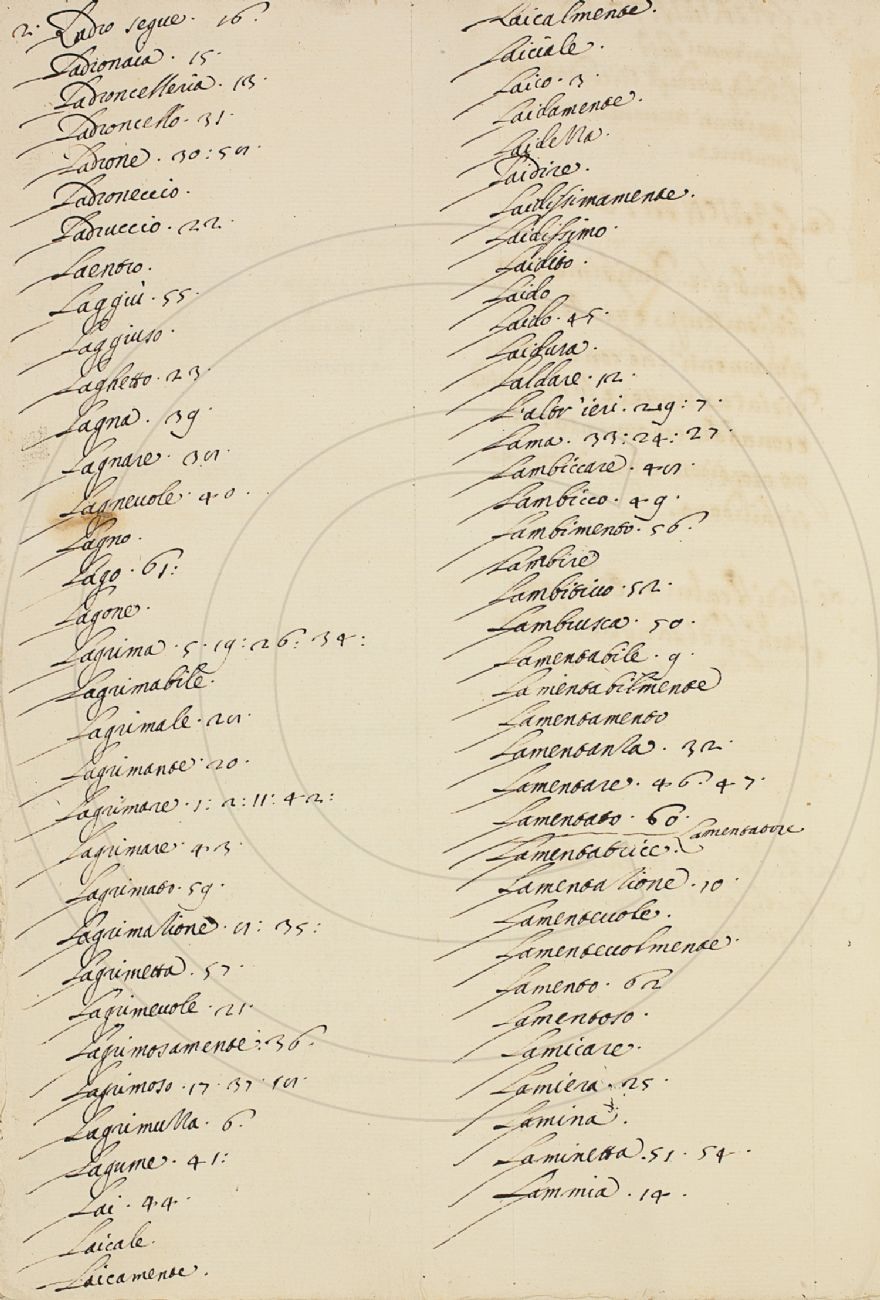 2. Ladro segue. 16.
Ladronaia. 15.
Ladroncelleria. 13.
Ladroncello. 31.
Ladrone. 30:
Ladroneccio.
Ladruccio. 22.
Laentro.
Laggiù. 55.
Laggiuso.
Laghetto. 23.
Lagna. 39.
Lagnare.
Lagnevole. 40.
Lagno.
Lago. 61:
Lagone.
Lagrima. 5. 19: 26: 34:
Lagrimabile.
Lagrimale.
Lagrimante. 20.
Lagrimare. 1: 2: 11: 42:
Lagrimare. 43.
Lagrimato. 59.
Lagrimazione. 35:
Lagrimetta. 57.
Lagrimevole. 21.
Lagrimosamente: 36.
Lagrimoso. 17. 37.
Lagrimuzza. 6.
Lagume. 41:
Lai. 44.
Laicale.
Laicamente.
Laicalmente.
Laiciale.
Laico. 3.
Laidamente.
Laidezza.
Laidire.
Laidissimamente.
Laidissimo.
Laidito.
Laido
Laido. 45.
Laidura.
Laldare. 12.
L'altr'ieri. 29: 7.
Lama. 33: 24: 27.
Lambiccare.
Lambicco. 49.
Lambimento. 56.
Lambire
Lambitivo. 52.
Lambrusca. 50.
Lamentabile. 9.
Lamentabilmente
Lamentamento
Lamentanza. 32.
Lamentare. 46. 47.
Lamentato. 60.
Lamentatore
Lamentatrice.
Lamentazione. 10.
Lamentevole.
Lamentevolmente.
Lamento. 62
Lamentoso.
Lamicare.
Lamiera. 25.
Lamina.
Laminetta. 51. 54.
Lammia. 14.